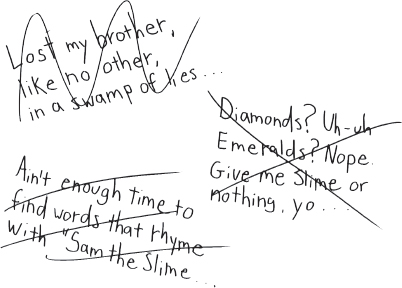 Lost my brother,
like no other,
in a swamp of lies...
Diamonds? Uh-uh
Emeralds? Nope.
Give me Slime or
nothing, yo....
Ain't enough time to
find words that rhyme
with "Sam the Slime...